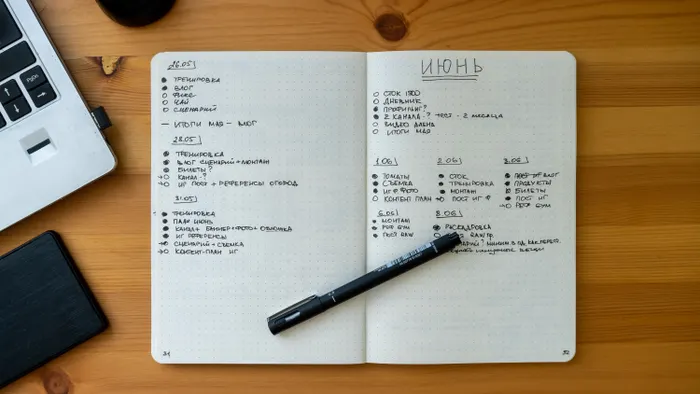 26.05
ТРЕНИРОВКА
ВЛОГ
ФИКС
ЧАЙ
СЦЕНАРИЙ
— ИТОГИ МАЯ — ВЛОГ
28.05
ТРЕНИРОВКА
ВЛОГ СЦЕНАРИЙ + МОНТАЖ
БИЛЕТЫ?
КАНАЛ - ?
ИГ ПОСТ + РЕФЕРЕНСЫ ОГОРОД
31.05
ТРЕНИРОВКА
ПЛАН ИЮНЬ
КАНАЛ + БАННЕР + ФОТО + ОБЛОЖКА
ИГ РЕФЕРЕНСЫ
СЦЕНАРИЙ + СЪЕМКА
КОНТЕНТ-ПЛАН ИГ
31
ИЮНЬ
СТОК 1500
ДНЕВНИК
ПРОФИТИНГ?
2 КАНАЛА - ? ТЕСТ - 2 МЕСЯЦА
ВИДЕО
ИТОГИ МАЯ
1.06
ТОМАТЫ
СЪЕМКА
ИГ ФОТО
КОНТЕНТ ПЛАН
2.06
СТОК
ТРЕНИРОВКА
МОНТАЖ
ПОСТ ИГ
3.06
ПОСТ ВЛОГ
ПРОДУКТЫ
БИЛЕТЫ
ПОСТ ИГ
POST GYM
6.06
МОНТАЖ
POST GYM
ПОСТ RAW
8.06
РАСКАДРОВКА
RAW
32
PGDN